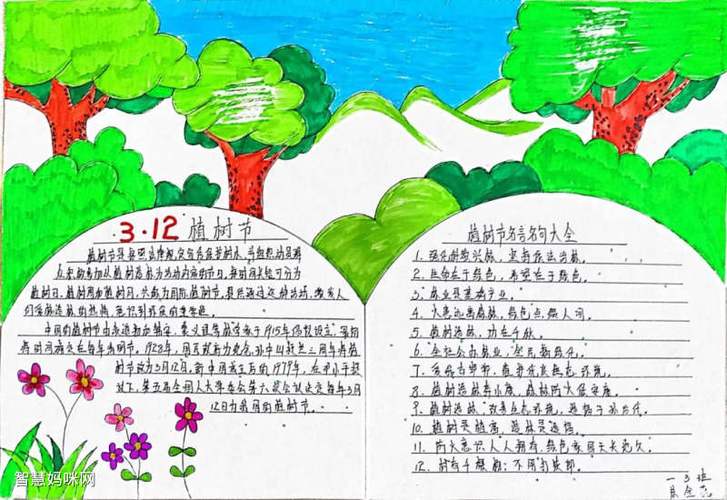 3.12 植树节
植树节是按照法律规定宣传保护树木,并组织动员群
众积极参加以植树造林为活动内容的节日。按时间长短可分为
植树日、植树周和植树月,共称为国际植树节。提倡通过这种活动,激发人
们爱林造林的热情、意识到环保的重要性。
中国的植树节由凌道扬和韩安、裴义理等林学家于1915年倡议设立,最初
将时间确定在每年清明节。1928年,国民政府为纪念孙中山逝世三周年将植
树节改为3月12日。新中国成立后的1979年,在邓小平提
议下,第五届全国人大常委会第六次会议决定每年3月
12日为我国的植树节。
植树节名言名句大全
1. 强化科教兴林,坚持依法治林。
2. 生命在于绿色,希望在于绿色。
3. 林业是基础产业。
4. 火患远离森林,绿色点缀人间。
5. 植树造林,功在千秋。
6. 全社会办林业,全民搞绿化。
7.
8. 植树造林奔小康,
9. 植树造林,改善生态环境,造福子孙后代。
10. 植树是植富,造林是造福。
11. 防火意识人人拥有,绿色家园天长地久。
12.
一3班
智慧妈咪网